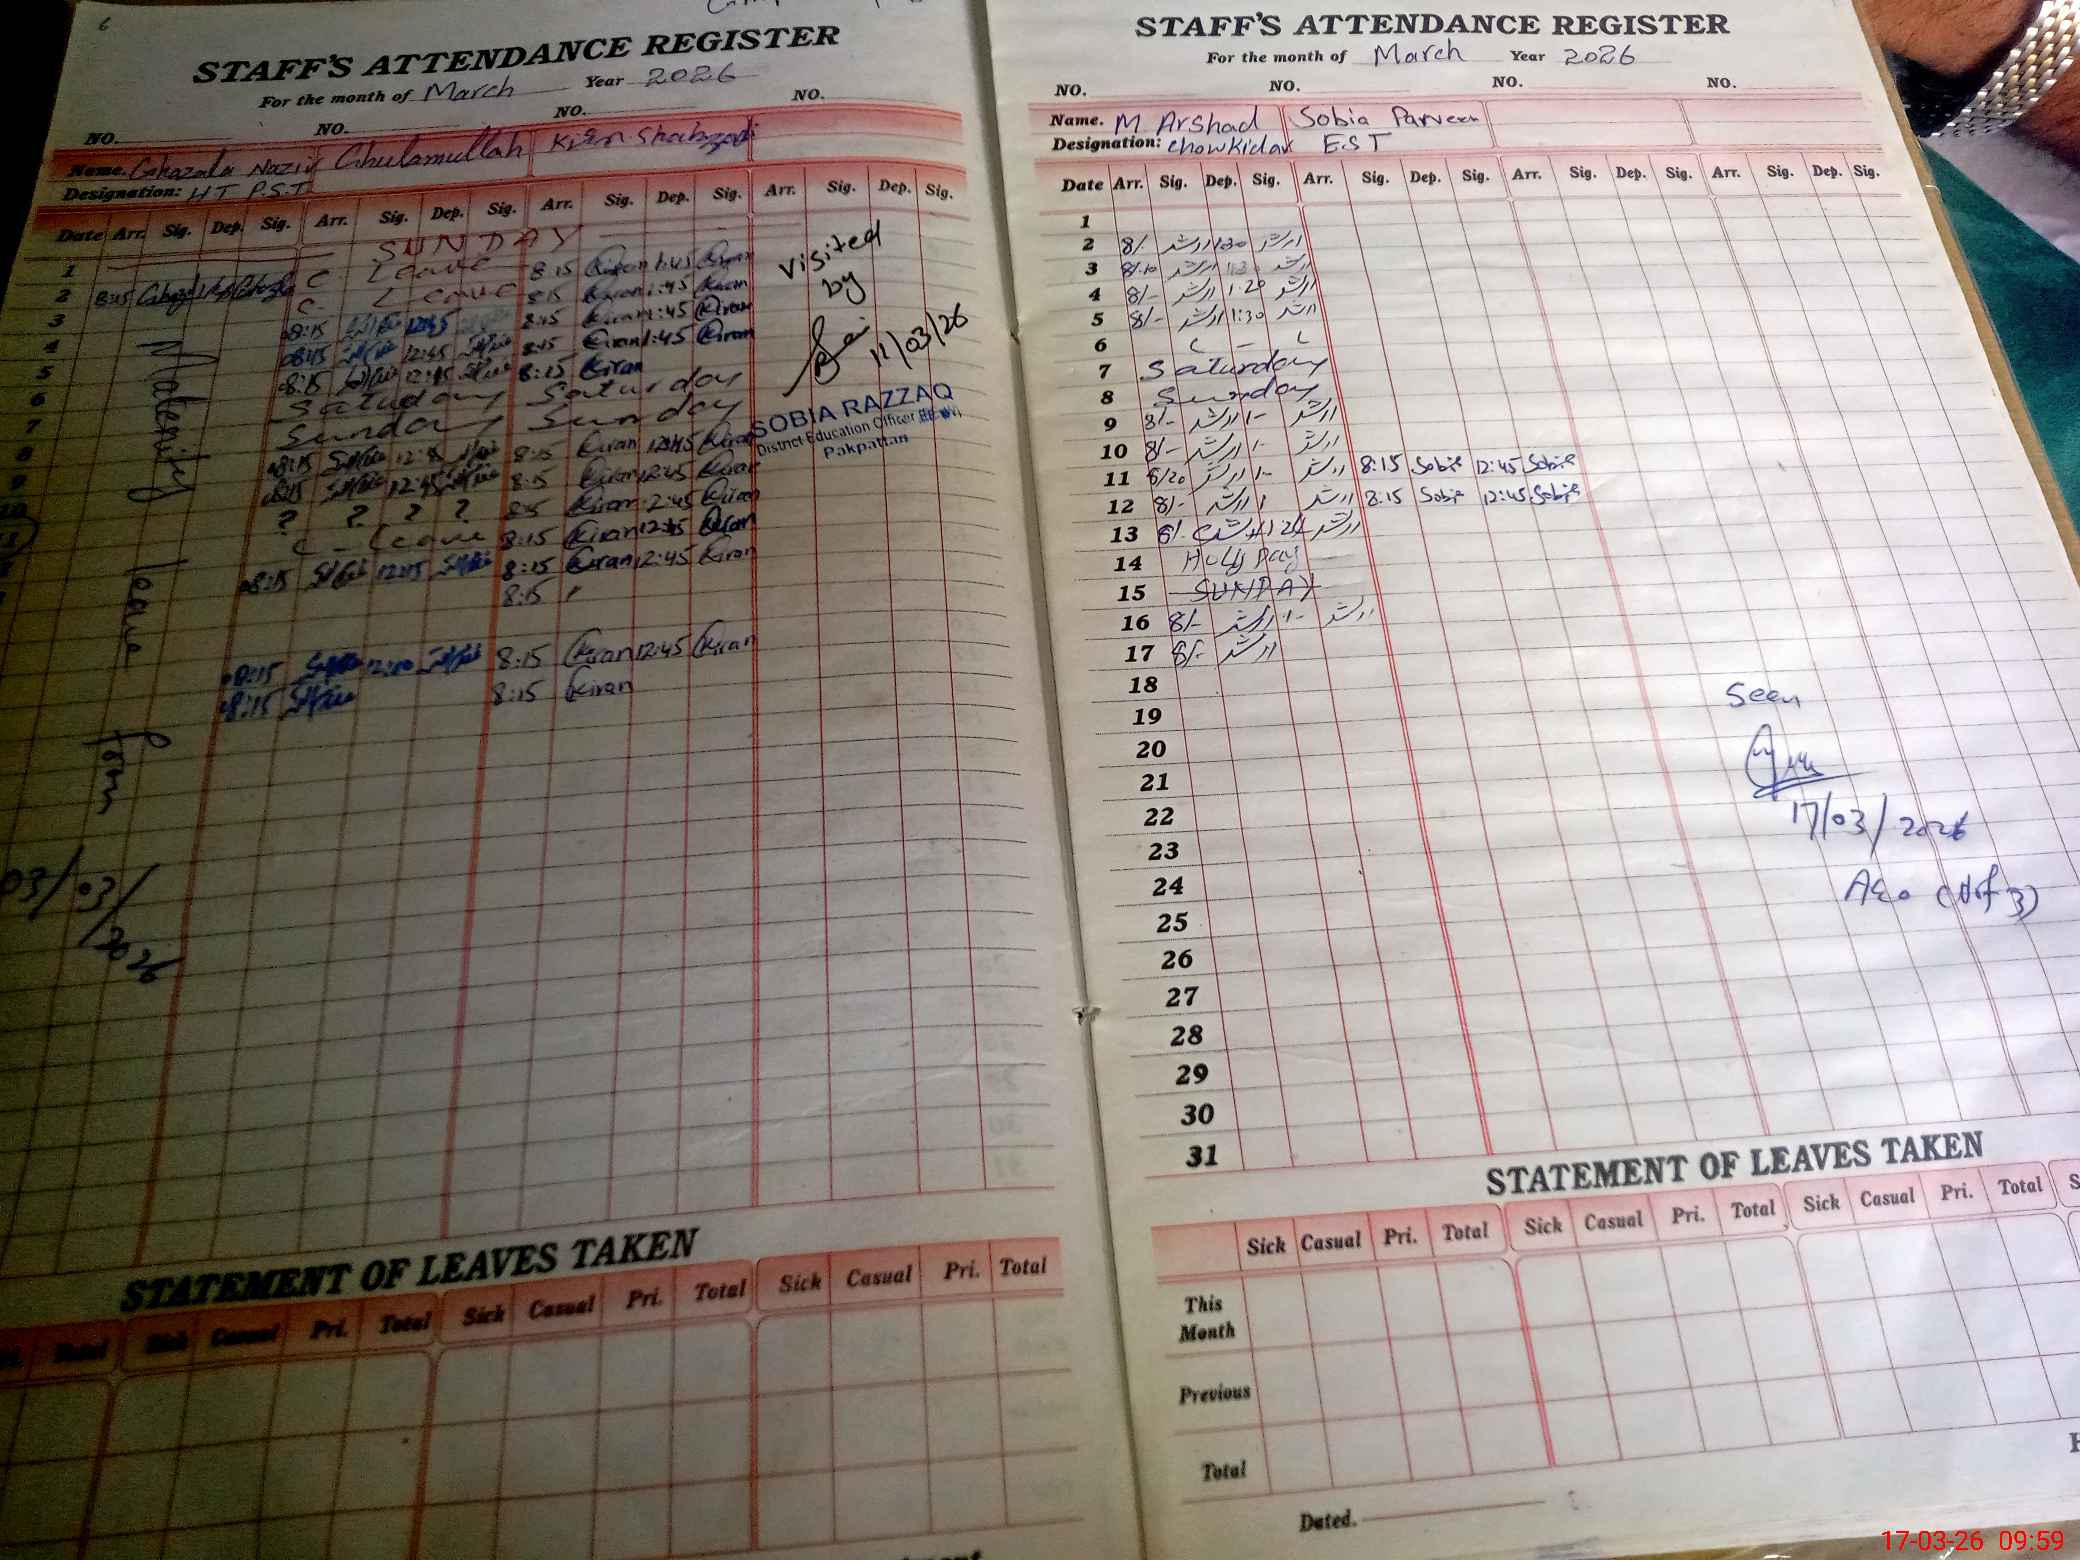 6
STAFF'S ATTENDANCE REGISTER
For the month of March Year 2026
NO. NO. NO. NO.
Name. Ghazala Nazir Ghulamullah Kiran Shahzadi
Designation: HT P.S.T
Date Arr. Sig. Dep. Sig. Arr. Sig. Dep. Sig. Arr. Sig. Dep. Sig. Arr. Sig. Dep. Sig.
1 SUNDAY
2 8:15 C- Leave 8:15 Kiran 1:45 Kiran
3 C- Leave 8:15 Kiran 1:45 Kiran
4 08:15 12:45 8:15 Kiran 1:45 Kiran
5 08:15 12:45 8:15 Kiran 1:45 Kiran
6 08:15 12:45 8:15 Kiran
7 Saturday Saturday
8 Sunday Sunday
9 08:15 8:15 Kiran 12:45 Kiran
08:15 12:45 8:15 Kiran 12:45 Kiran
? ? ? ? 8:15 Kiran 12:45 Kiran
C- Leave 8:15 Kiran 12:45 Kiran
08:15 12:45 8:15 Kiran 12:45 Kiran
8:15
08:15 8:15 Kiran 12:45 Kiran
08:15 8:15 Kiran
Maternity leave from
03/03/2026
Visited
by
11/03/26
SOBIA RAZZAQ
District Education Officer
Pakpattan
STATEMENT OF LEAVES TAKEN
Total Sick Casual Pri. Total Sick Casual Pri. Total Sick Casual Pri. Total
STAFF'S ATTENDANCE REGISTER
For the month of March Year 2026
NO. NO. NO. NO.
Name. M Arshad Sobia Parveen
Designation: Chowkidar EST
Date Arr. Sig. Dep. Sig. Arr. Sig. Dep. Sig. Arr. Sig. Dep. Sig. Arr. Sig. Dep. Sig.
1
2 8/- ارشد 1:30 ارشد
3 8/10 ارشد 1:30 ارشد
4 8/- ارشد 1:20 ارشد
5 8/- ارشد 1:30 ارشد
6 C - L
7 Saturday
8 Sunday
9 8/- ارشد 1- ارشد
10 8/- ارشد 1- ارشد
11 8/20 ارشد 1- ارشد 8:15 Sobia 12:45 Sobia
12 8/- ارشد 1 ارشد 8:15 Sobia 12:45 Sobia
13 8/- ارشد ارشد
14 Holly Day
15 SUNDAY
16 8/- ارشد 1- ارشد
17 8/- ارشد
18
19
20
21
22
23
24
25
26
27
28
29
30
31
Seen
17/03/2026
AEO
STATEMENT OF LEAVES TAKEN
Sick Casual Pri. Total Sick Casual Pri. Total Sick Casual Pri. Total
This Month
Previous
Total
Dated.
17-03-26 09:59